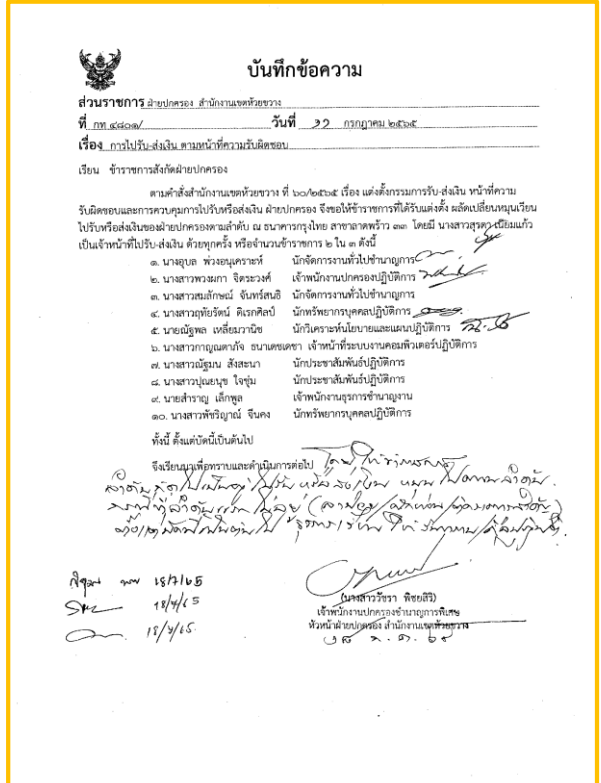 บันทึกข้อความ
ส่วนราชการ ฝ่ายปกครอง สำนักงานเขตห้วยขวาง
ที่ กท ๔๘๐๑/ วันที่ กรกฎาคม ๒๕๖๕
เรื่อง การไปรับ-ส่งเงิน ตามหน้าที่ความรับผิดชอบ
เรียน ข้าราชการสังกัดฝ่ายปกครอง
ตามคำสั่งสำนักงานเขตห้วยขวาง ที่ ๖๐/๒๕๖๕ เรื่อง แต่งตั้งกรรมการรับ-ส่งเงิน หน้าที่ความ
รับผิดชอบและการควบคุมการไปรับหรือส่งเงิน ฝ่ายปกครอง จึงขอให้ข้าราชการที่ได้รับแต่งตั้ง ผลัดเปลี่ยนหมุนเวียน
ไปรับหรือส่งเงินของฝ่ายปกครองตามลำดับ ณ ธนาคารกรุงไทย สาขาลาดพร้าว ๓๓ โดยมี นางสาวสุรดา เนียมแก้ว
เป็นเจ้าหน้าที่ไปรับ-ส่งเงิน ด้วยทุกครั้ง หรือจำนวนข้าราชการ ๒ ใน ๓ ดังนี้
๑. นางอุบล พ่วงอนุเคราะห์ นักจัดการงานทั่วไปชำนาญการ
๒. นางสาวพวงผกา จิตระวงศ์ เจ้าพนักงานปกครองปฏิบัติการ
๓. นางสาวสมลักษณ์ จันทร์สนธิ นักจัดการงานทั่วไปชำนาญการ
๔. นางสาวฤทัยรัตน์ ดิเรกศิลป์ นักทรัพยากรบุคคลปฏิบัติการ
๕. นายณัฐพล เหลี่ยมวานิช นักวิเคราะห์นโยบายและแผนปฏิบัติการ
๖. นางสาวกาญณตาภัจ ธนาเดชเดชา เจ้าหน้าที่ระบบงานคอมพิวเตอร์ปฏิบัติการ
๗. นางสาวณัฐมน สังสะนา นักประชาสัมพันธ์ปฏิบัติการ
๘. นางสาวปุณยนุช ใจชุ่ม นักประชาสัมพันธ์ปฏิบัติการ
๙. นายสำราญ เล็กพูล เจ้าพนักงานธุรการชำนาญงาน
๑๐. นางสาวพัชริญาณ์ จีนคง นักทรัพยากรบุคคลปฏิบัติการ
ทั้งนี้ ตั้งแต่บัดนี้เป็นต้นไป
จึงเรียนมาเพื่อทราบและดำเนินการต่อไป
18/7/65
18/7/65
18/7/65
(นางสาววัชรา พิชยสิริ)
เจ้าพนักงานปกครองชำนาญการพิเศษ
หัวหน้าฝ่ายปกครอง สำนักงานเขตห้วยขวาง
๑๘ ก.ค. ๖๕